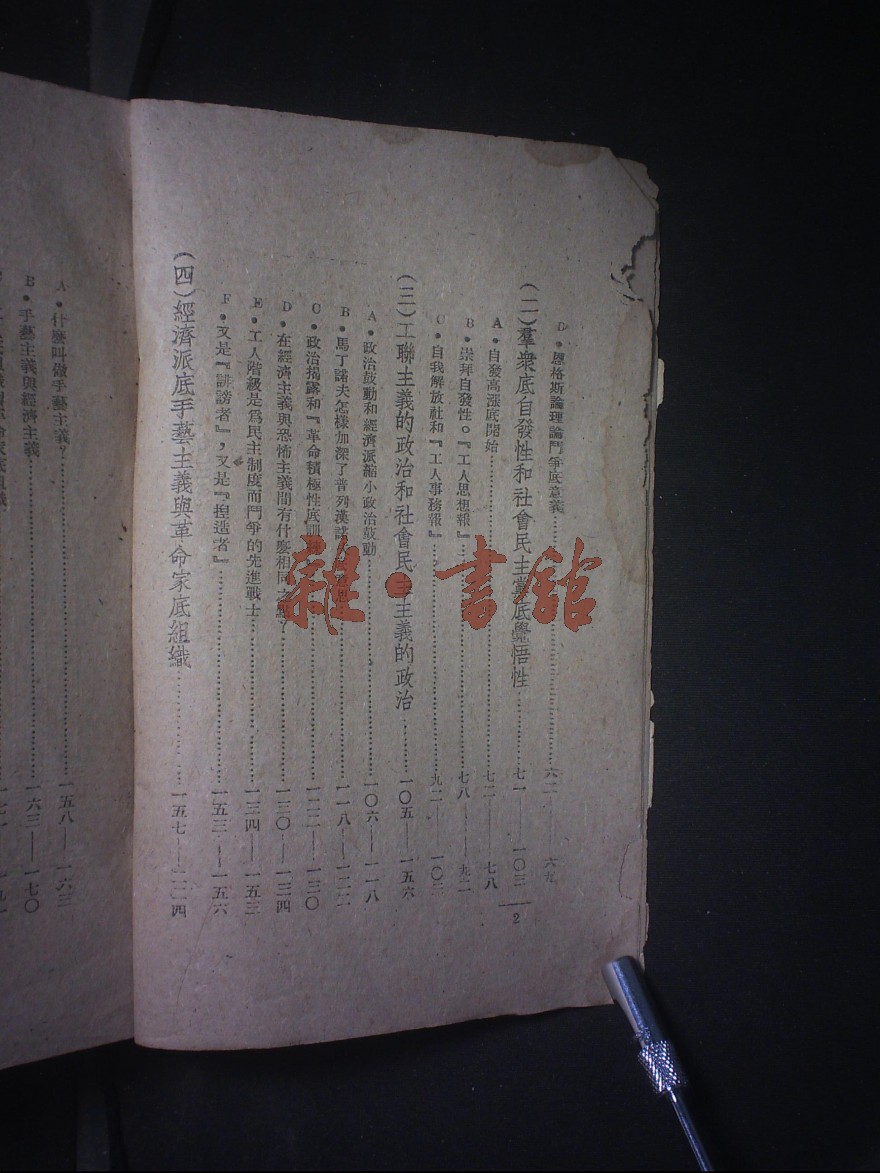 D•恩格斯論理論鬥爭底意義……六二——六九
(二)羣衆底自發性和社會民主黨底覺悟性……七一——一〇三
A•自發高漲底開始……七二——七八
B•崇拜自發性。『工人思想報』……七八——九二
C•自我解放社和『工人事務報』……九二——一〇三
(三)工聯主義的政治和社會民主主義的政治……一〇五——一五六
A•政治鼓動和經濟派縮小政治鼓動……一〇六——一一八
B•馬丁諾夫怎樣加深了普列漢諾夫……一一八——一二二
C•政治揭露和『革命積極性底訓練』……一二二——一三〇
D•在經濟主義與恐怖主義間有什麼相同之點?……一三〇——一三四
E•工人階級是爲民主制度而鬥爭的先進戰士……一三四——一五三
F•又是『誹謗者』,又是『捏造者』……一五三——一五六
(四)經濟派底手藝主義與革命家底組織……一五七——二二四
2
A•什麼叫做手藝主義?……一五八——一六三
B•手藝主義與經濟主義……一六三——一七〇
雜•書館